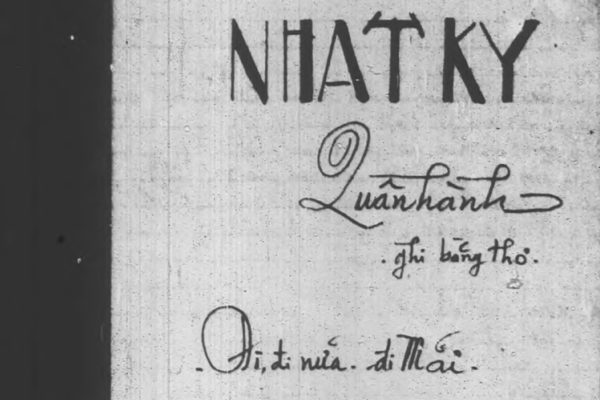 NHẬT KÝ
Quân hành
ghi bằng thơ.
Đi, đi nữa. đi Mãi.